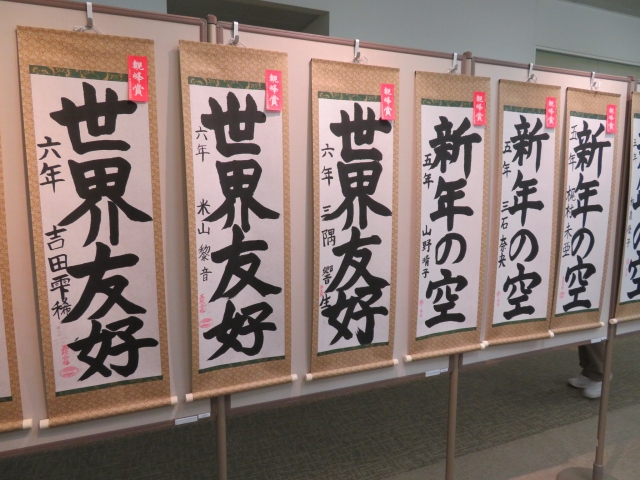 観峰賞
世界友好
六年
吉田雫稀
観峰賞
世界友好
六年
米山黎音
観峰賞
世界友好
六年
三隅響生
観峰賞
新年の空
五年
山野晴子
観峰賞
新年の空
五年
三石奏央
観峰賞
新年の空
五年
梶村未亜